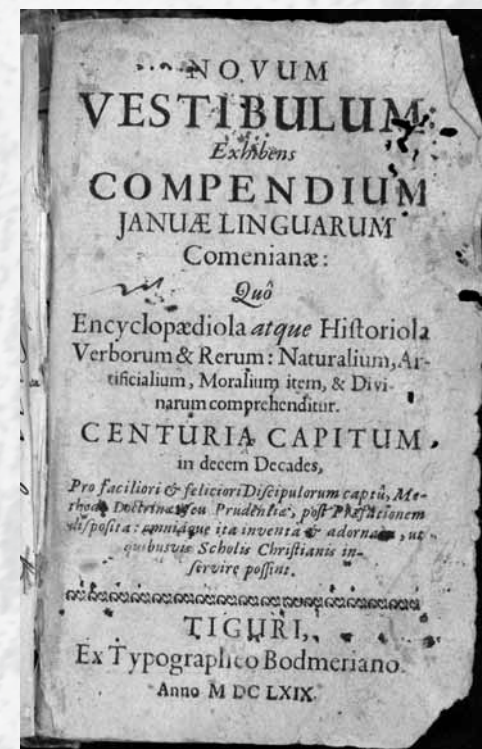 NOVUM
VESTIBULUM:
Exhibens
COMPENDIUM
JANUÆ LINGUARUM
Comenianæ:
Quô
Encyclopædiola atque Hiſtoriola
Verborum & Rerum: Naturalium, Ar-
tificialium, Moralium item, & Divi-
narum comprehenditur.
CENTURIA CAPITUM
in decem Decades,
Pro faciliori & feliciori Diſcipulorum captû, Me-
thodo Doctrinæ ſeu Prudentiæ, poſt Præfationem
diſpoſita: omniaque ita inventa & adornata, ut
quibusvis Scholis Chriſtianis in-
ſervire poſſint.
TIGURI,
Ex Typographéo Bodmeriano.
Anno M DC LXIX.